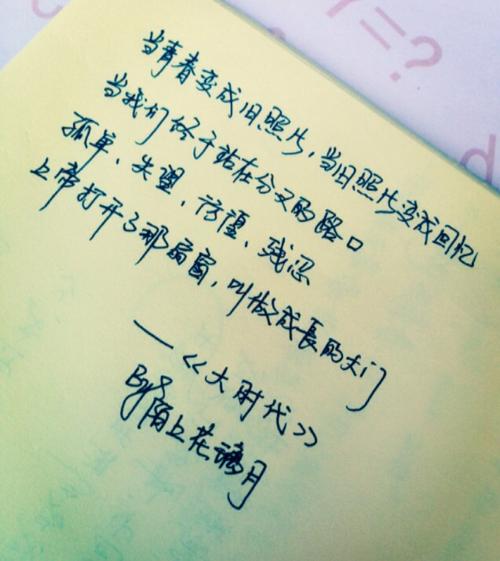 当青春变成旧照片，当旧照片变成回忆
当我们终于站在分叉的路口
孤单、失望、彷徨、残忍
上帝打开了那扇窗，叫做成長的大门
——《大时代》
By 陌上花月
=?